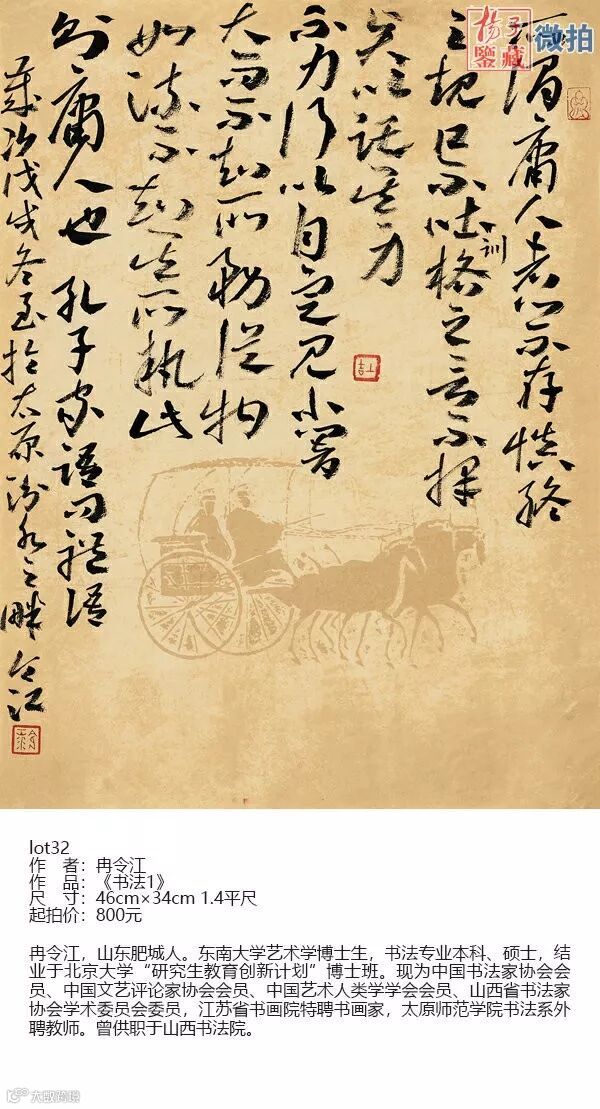 楊子
鑒藏
微拍
所谓庸人者心不存慎终
之规口不吐格之言不择
训
贤以託其身
不力行以自定见小闇
大而不知所務從物
如流不知其所執此
則庸人也 孔子家語
歲次戊戌冬至於太原汾水之畔 令江
lot32
作 者：冉令江
作 品：《书法1》
尺 寸：46cm×34cm 1.4平尺
起拍价：800元
冉令江，山东肥城人。东南大学艺术学博士生，书法专业本科、硕士，结
业于北京大学“研究生教育创新计划”博士班。现为中国书法家协会会
员、中国文艺评论家协会会员、中国艺术人类学学会会员、山西省书法家
协会学术委员会委员，江苏省书画院特聘书画家，太原师范学院书法系外
聘教师。曾供职于山西书法院。
大欧跨境